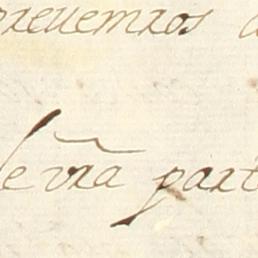 preuemros a
de vra part